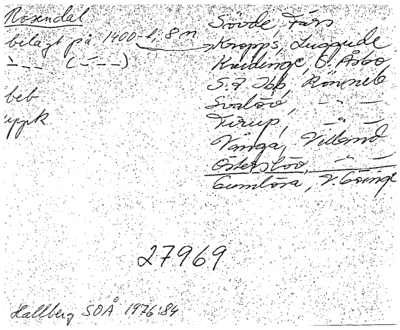 Rosendal
belägt på 1400-t, 8 n
- - - (- - -)
beb
uppk
Sövde, Färs
Kropps, Luggude
Kvidinge, Ö. Åsbo
S:t Ibb, Rönneb
Svalöv, - " -
Tirup, - " -
Vånga, Villand
Österslöv, - " -
Gumlösa, V. Göinge
27969
Hallberg SOÅ 1976:84